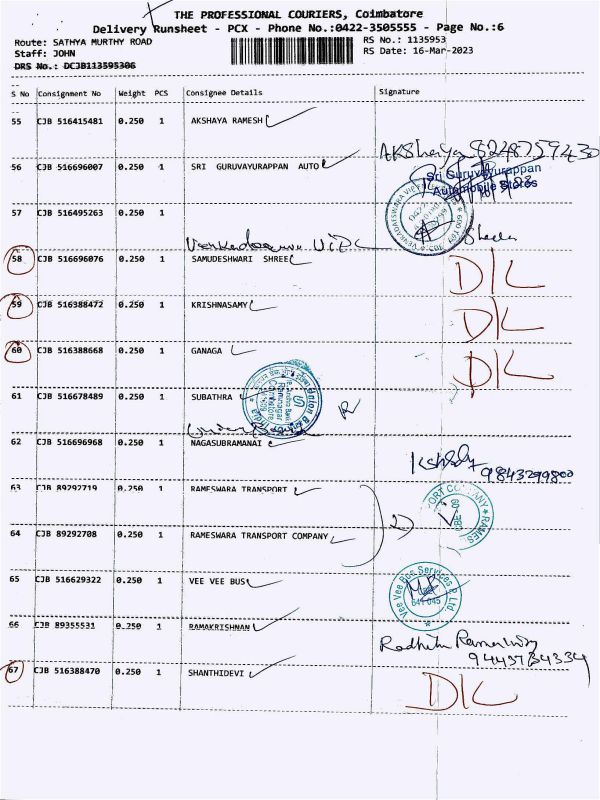 THE PROFESSIONAL COURIERS, Coimbatore
Delivery Runsheet - PCX - Phone No.:0422-3505555 - Page No.:6
Route: SATHYA MURTHY ROAD
RS No.: 1135953
Staff: JOHN
RS Date: 16-Mar-2023
DRS No.: DCJB113595306
S No Consignment No Weight PCS Consignee Details Signature
55 CJB 516415481 0.250 1 AKSHAYA RAMESH
AKShaya 8248759430
56 CJB 516696007 0.250 1 SRI GURUVAYURAPPAN AUTO
Sri Guruvayurappan
Automobile Stores
57 CJB 516495263 0.250 1
58 CJB 516696076 0.250 1 SAMUDESHWARI SHREE DL
59 CJB 516388472 0.250 1 KRISHNASAMY DL
60 CJB 516388668 0.250 1 GANAGA DL
61 CJB 516678489 0.250 1 SUBATHRA
62 CJB 516696968 0.250 1 NAGASUBRAMANAI
9843299800
63 CJB 89292719 0.250 1 RAMESWARA TRANSPORT
64 CJB 89292708 0.250 1 RAMESWARA TRANSPORT COMPANY
65 CJB 516629322 0.250 1 VEE VEE BUS
Vee Vee Bus Services P. Ltd
641 045
66 CJB 89355531 0.250 1 RAMAKRISHNAN
67 CJB 516388470 0.250 1 SHANTHIDEVI DL